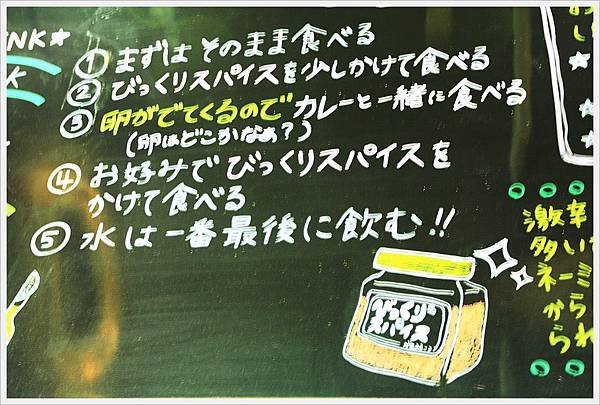 NK★
K
① まずは そのまま食べる
② びっくりスパイスを少しかけて食べる
③ 卵がでてくるのでカレーと一緒に食べる
(卵はどこかなぁ？)
④ お好みでびっくりスパイスを
かけて食べる
⑤ 水は一番最後に飲む!!
びっくり
スパイス
激辛
多い